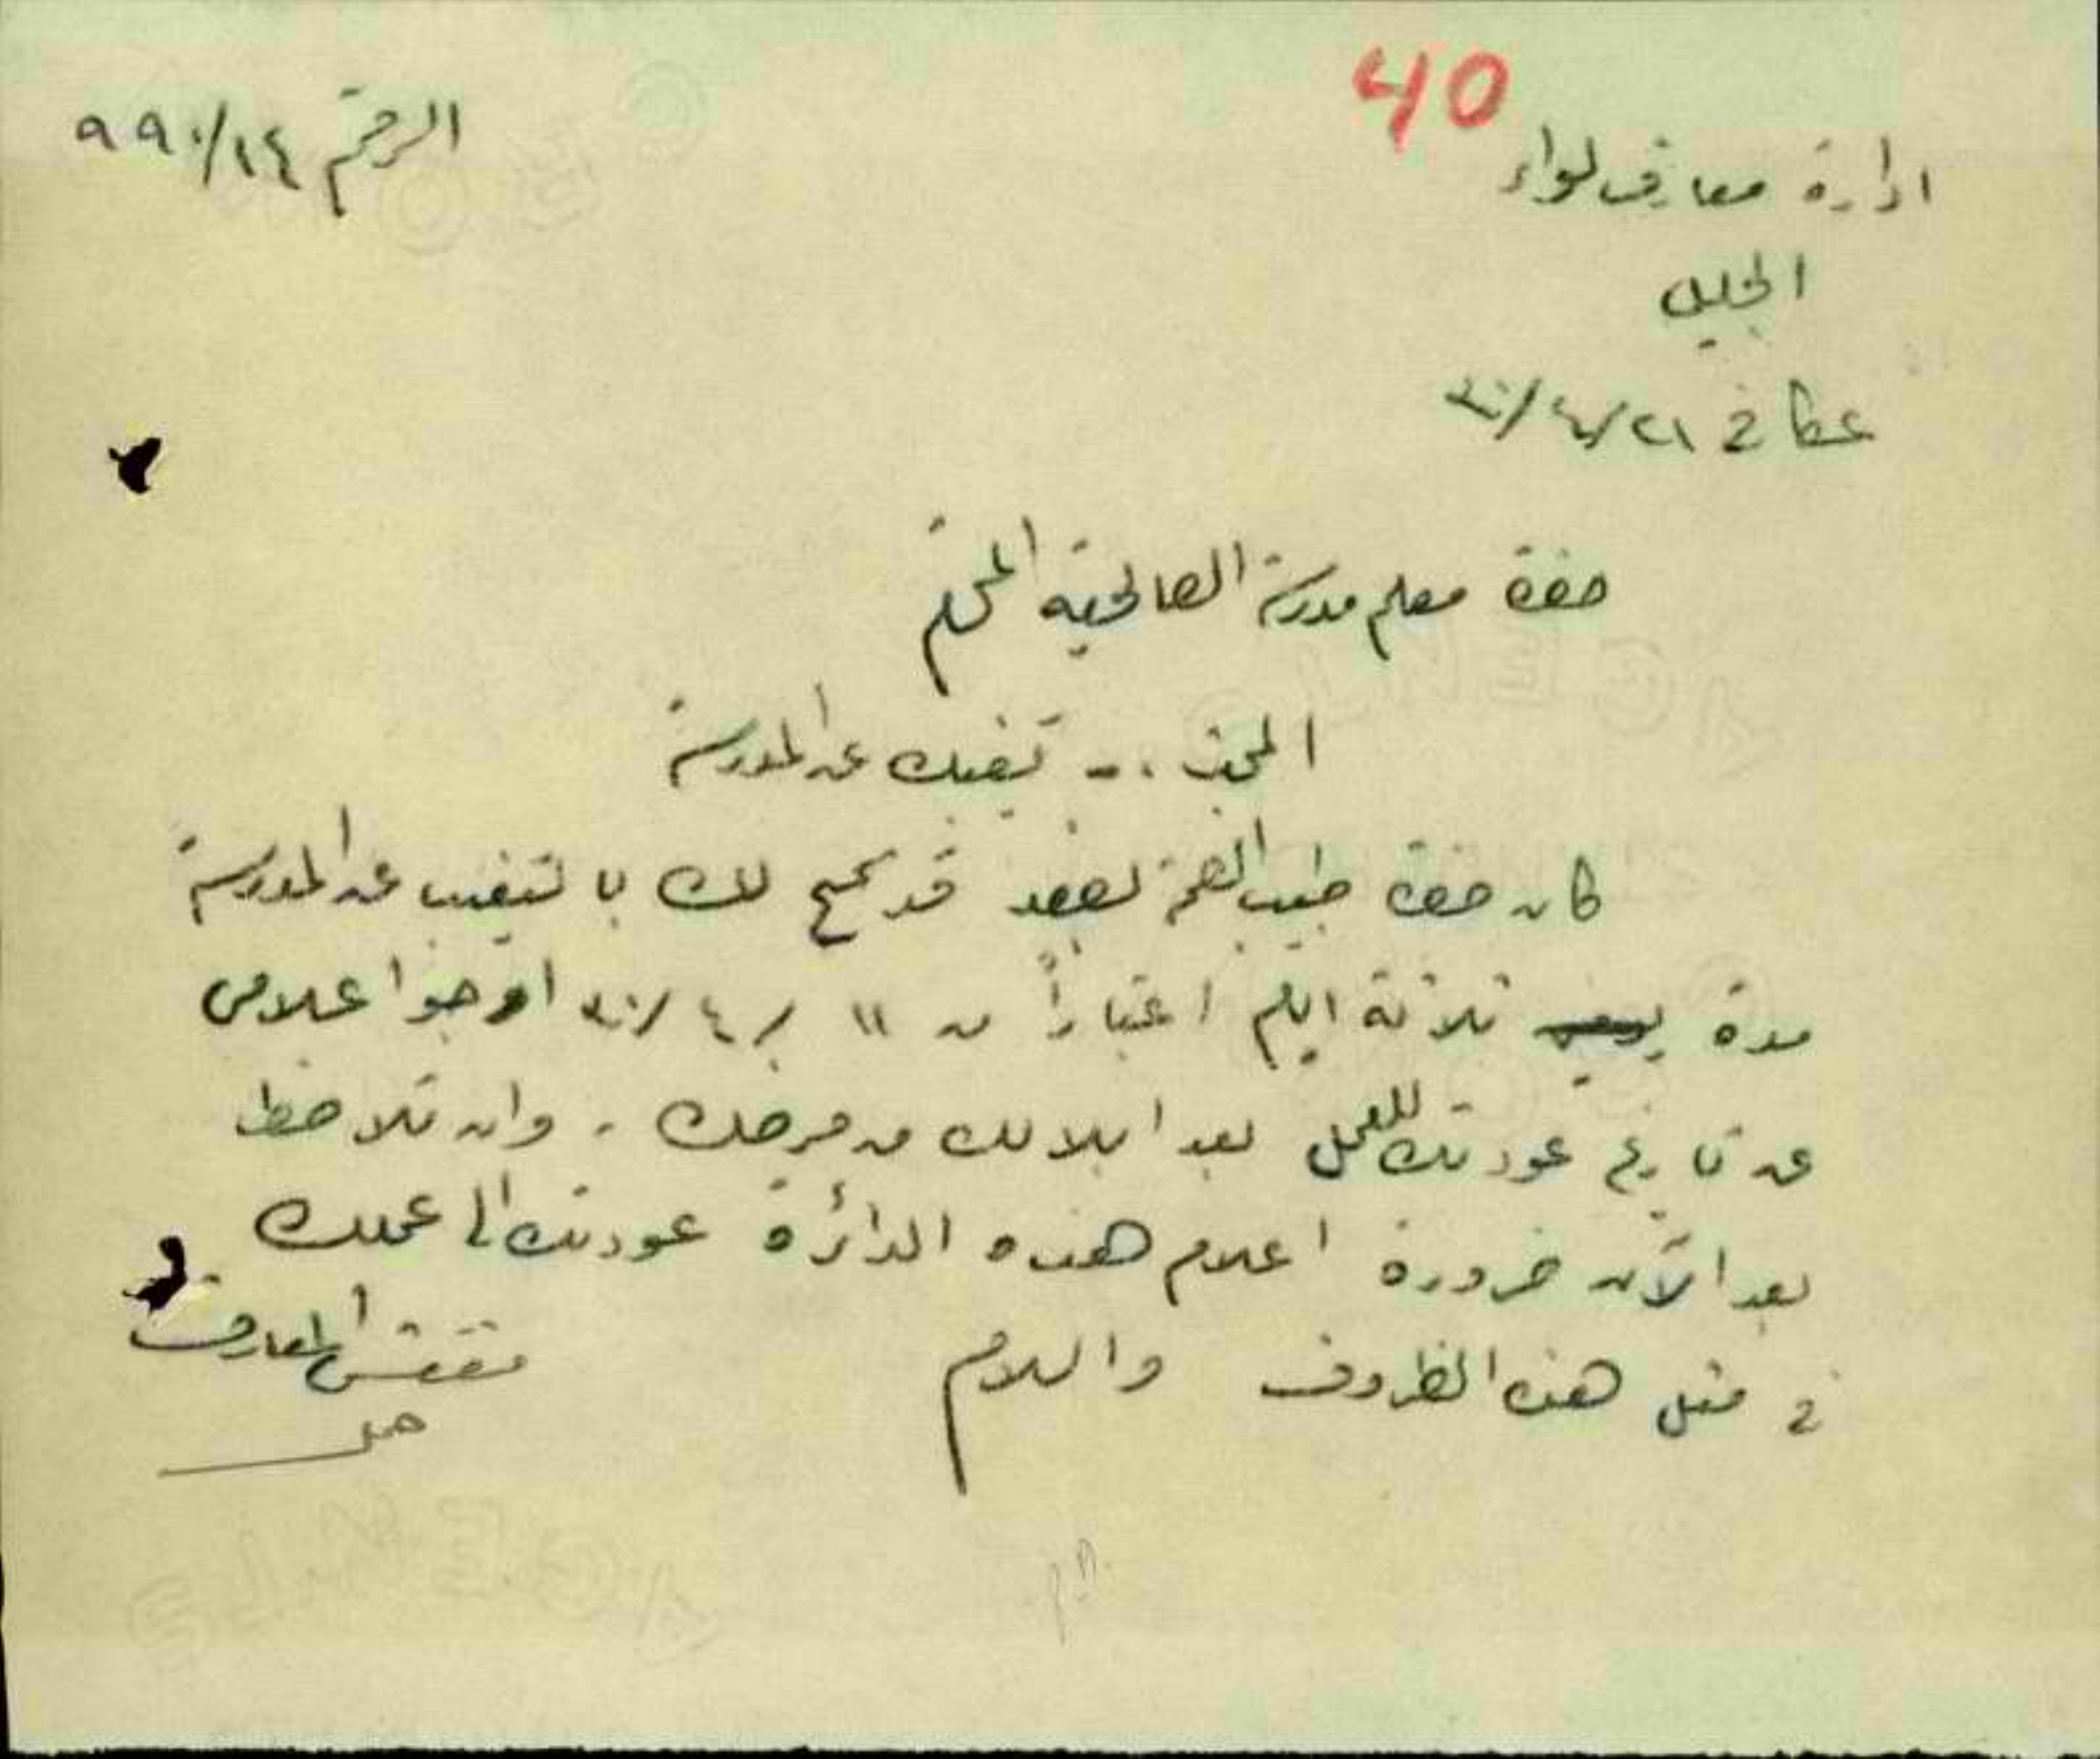 40
ادارة معارف لواء
الرقم ٩٩٠/١٤
الجليل
عكا في ٢١/٤/٤٠
حضرة معلم مدرسة الصالحية المحترم
المبحث :- تغيبك عن المدرسة
كان حضرة طبيب الصحة بصفد قد سمح لك بالتغيب عن المدرسة
مدة ثلاثة ايام اعتباراً من ١١/٤/٤٠ ارجو اعلامي
عن تاريخ عودتك للعمل بعد ابلالك من مرضك . وان تلاحظ
بعد الآن ضرورة اعلام هذه الدائرة عودتك الى عملك
في مثل هذه الظروف والسلام
مفتش المعارف